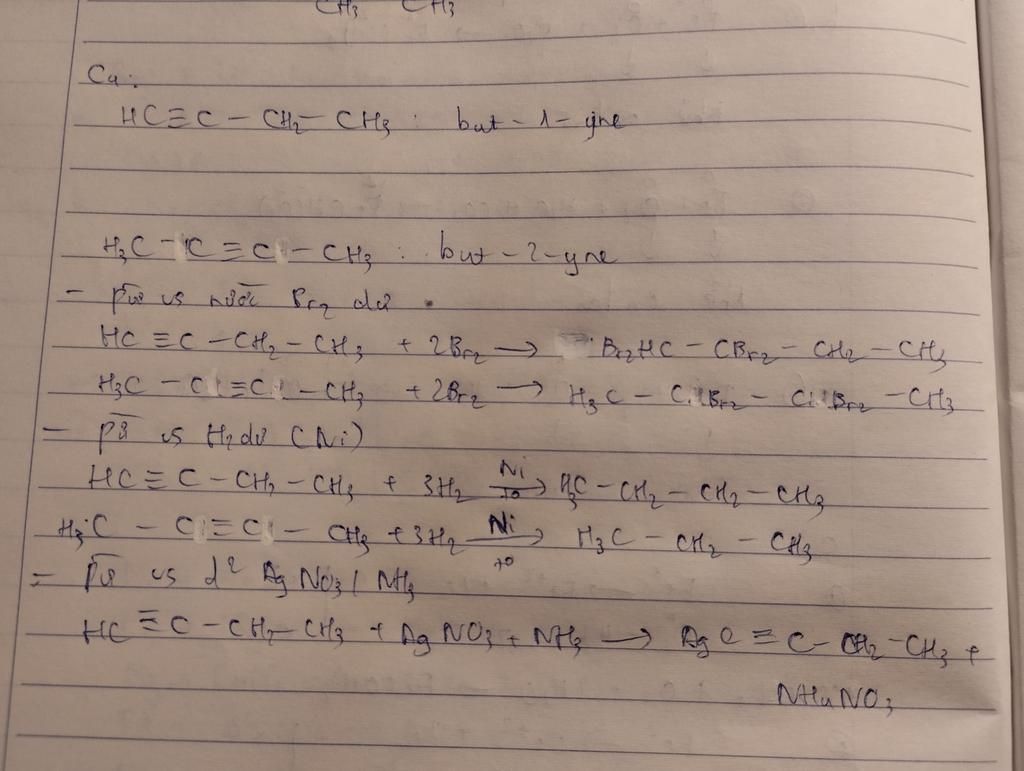 CH3 CH3
C4:
HC≡C – CH2 – CH3 : but – 1 – yne
H3C – C ≡ C – CH3 : but – 2 – yne
– pứ vs nước Br2 dư
HC ≡ C – CH2 – CH3 + 2Br2 → Br2HC – CBr2 – CH2 – CH3
H3C – C ≡ C – CH3 + 2Br2 → H3C – CBr2 – CBr2 – CH3
– pứ vs H2 dư (Ni)
HC ≡ C – CH2 – CH3 + 3H2 Ni → to H3C – CH2 – CH2 – CH3
H3C – C ≡ C – CH3 + 3H2 Ni → to H3C – CH2 – CH3
= pứ vs d2 AgNO3 / NH3
HC ≡ C – CH2 – CH3 + AgNO3 + NH3 → AgC ≡ C – CH2 – CH3 +
NH4NO3